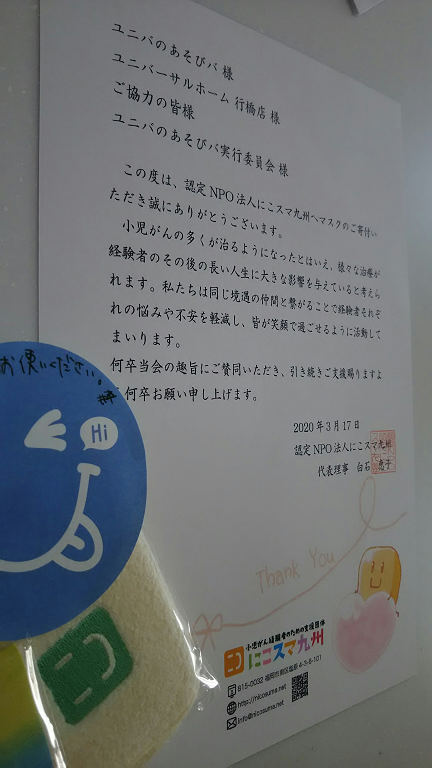 ユニバのあそびバ 様
ユニバーサルホーム 行橋店 様
ご協力の皆様
ユニバのあそびバ実行委員会 様
この度は、認定NPO法人にこスマ九州へマスクのご寄付い
ただき誠にありがとうございます。
小児がんの多くが治るようになったとはいえ、様々な治療が
経験者のその後の長い人生に大きな影響を与えていると考えら
れます。私たちは同じ境遇の仲間と繋がることで経験者それぞ
れの悩みや不安を軽減し、皆が笑顔で過ごせるように活動して
まいります。
何卒当会の趣旨にご賛同いただき、引き続きご支援賜りますよ
何卒お願い申し上げます。
2020年3月17日
認定NPO法人にこスマ九州
代表理事 白石 恵子
お使いください。
Hi
Thank You
小児がん経験者のための支援団体
にこスマ九州
815-0032 福岡市南区塩原 4-3-8-101
http://nicosuma.net
info@nicosuma.net